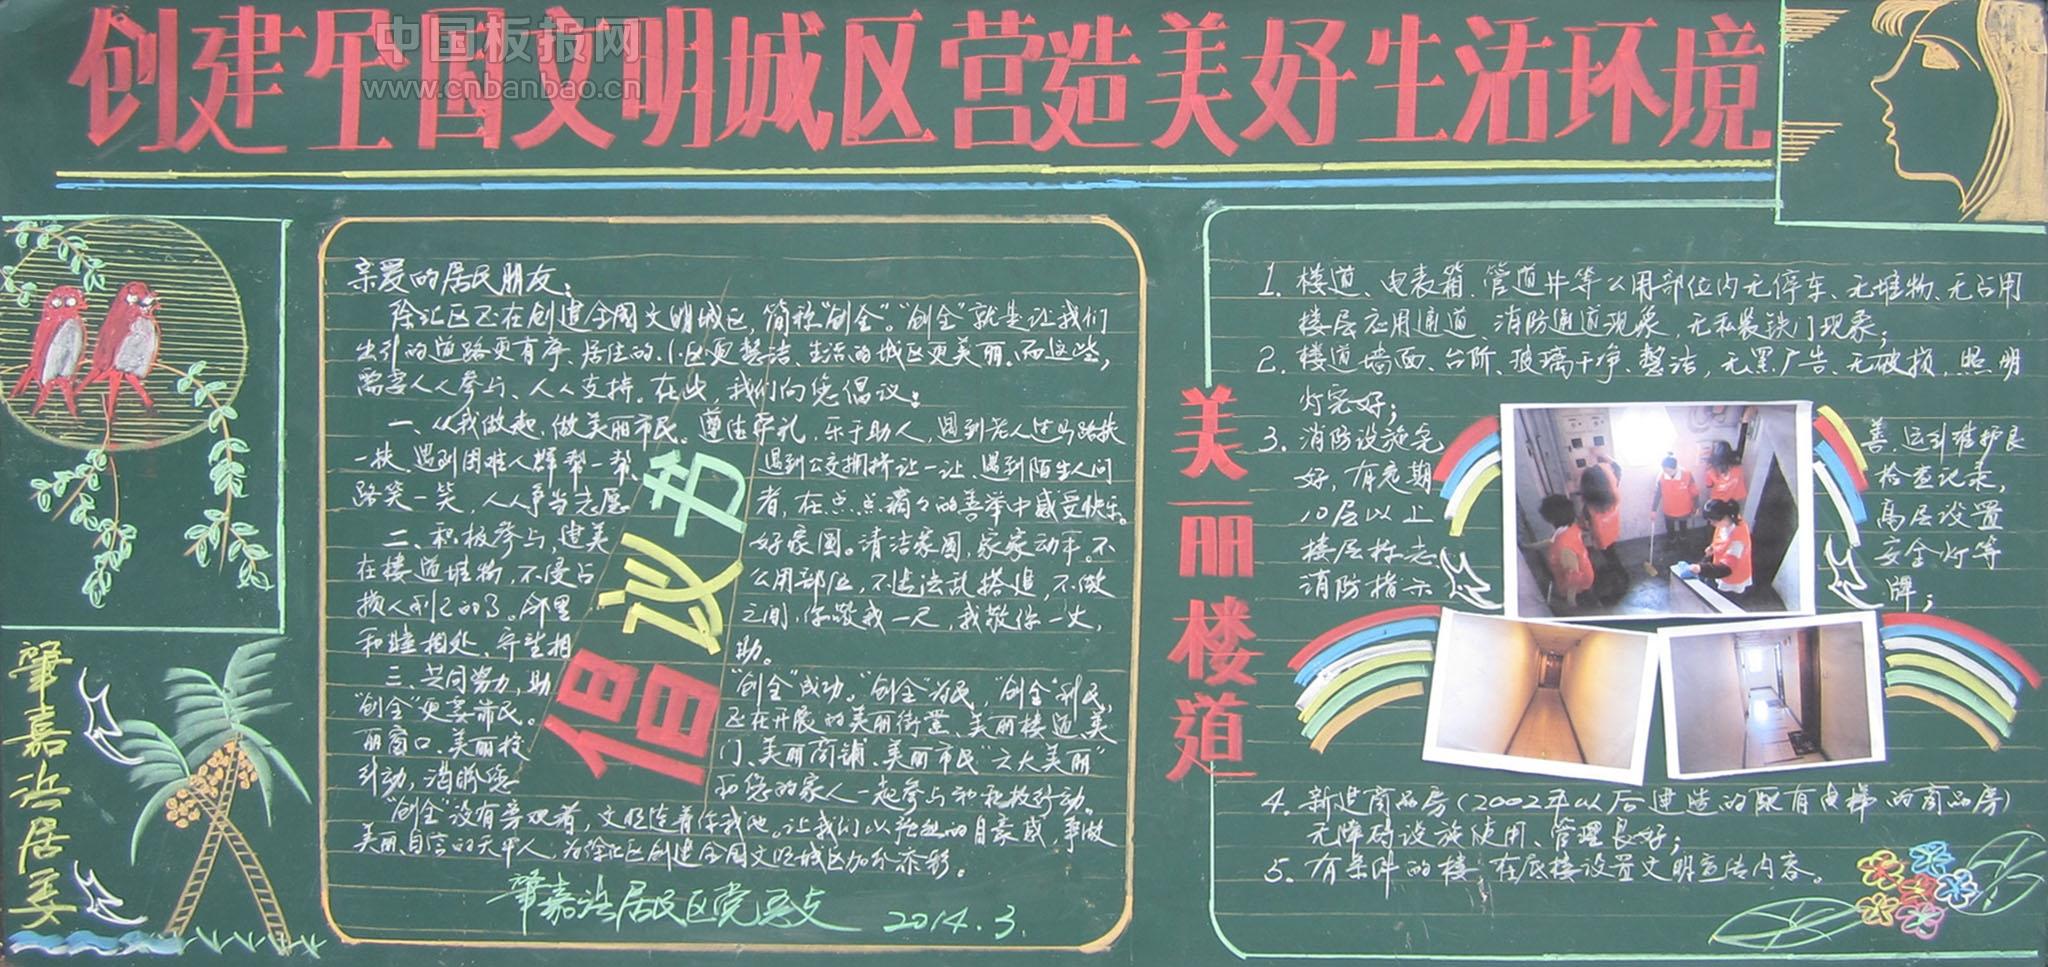 创建全国文明城区营造美好生活环境
中国板报网
www.cnbanbao.cn
亲爱的居民朋友：
徐汇区正在创建全国文明城区，简称“创全”。“创全”就是让我们
出行的道路更有序、居住的小区更整洁、生活的城区更美丽。而这些，
需要人人参与、人人支持。在此，我们向您倡议：
一、从我做起，做美丽市民。遵德守礼，乐于助人，遇到老人过马路扶
一扶，遇到困难人群帮一帮、遇到公交拥挤让一让、遇到陌生人问
路笑一笑，人人争当志愿者，在点点滴々的善举中感受快乐。
二、积极参与，建美好家园。清洁家园，家家动手。不
在楼道堆物，不侵占公用部位，不违法乱搭建，不做
损人利己的事。邻里之间，你敬我一尺，我敬你一丈，
和睦相处、守望相助。
三、共同努力，助“创全”成功。“创全”为民，“创全”利民，
“创全”更要市民。正在开展的美丽街区、美丽楼道、美
丽窗口、美丽校门、美丽商铺、美丽市民“六大美丽”
行动，期盼您和您的家人一起参与和积极行动。
“创全”没有旁观者，文明连着你我他。让我们以的自豪感，争做
美丽、自信的人，为徐汇区创建全国文明城区加分添彩。
倡议书
肇嘉浜居民区党总支
2014.3
肇嘉浜居委
美丽楼道
1. 楼道、电表箱、管道井等公用部位内无停车、无堆物、无占用
楼层应用通道、消防通道现象，无私装铁门现象；
2. 楼道墙面、台阶、玻璃干净、整洁，无黑广告、无破损，照明
灯完好；
3. 消防设施完善，运行维护良
好，有定期检查记录，
10层以上高层设置
楼层标志、安全灯等
消防指示牌；
4. 新建商品房（2002年以后建造的配有电梯的商品房）
无障碍设施使用、管理良好；
5. 有条件的楼，在底楼设置文明宣传内容。